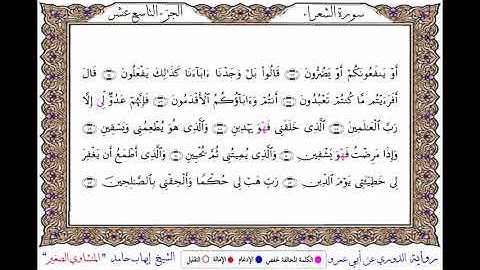 سورة الشعراء
الجزء التاسع عشر
أَوْ يَنفَعُونَكُمْ أَوْ يَضُرُّونَ قَالُواْ بَلْ وَجَدْنَا ءَابَآءَنَا كَذَٰلِكَ يَفْعَلُونَ قَالَ
أَفَرَءَيْتُم مَّا كُنتُمْ تَعْبُدُونَ أَنتُمْ وَءَابَآؤُكُمُ الْأَقْدَمُونَ فَإِنَّهُمْ عَدُوٌّ لِّيَ إِلَّا
رَبَّ الْعَٰلَمِينَ الَّذِي خَلَقَنِي فَهْوَ يَهْدِينِ وَالَّذِي هُوَ يُطْعِمُنِي وَيَسْقِينِ
وَإِذَا مَرِضْتُ فَهْوَ يَشْفِينِ وَالَّذِي يُمِيتُنِي ثُمَّ يُحْيِينِ وَالَّذِي أَطْمَعُ أَن يَغْفِرَ
لِي خَطِيٓـَٔتِي يَوْمَ الدِّينِ رَبِّ هَبْ لِي حُكْمًا وَأَلْحِقْنِي بِالصَّٰلِحِينَ
رواية الدوري عن أبي عمرو الكلمة المخالفة لحفص الإدغام الإمالة التقليل الشيخ إيهاب حامد "المنشاوي الصغير"